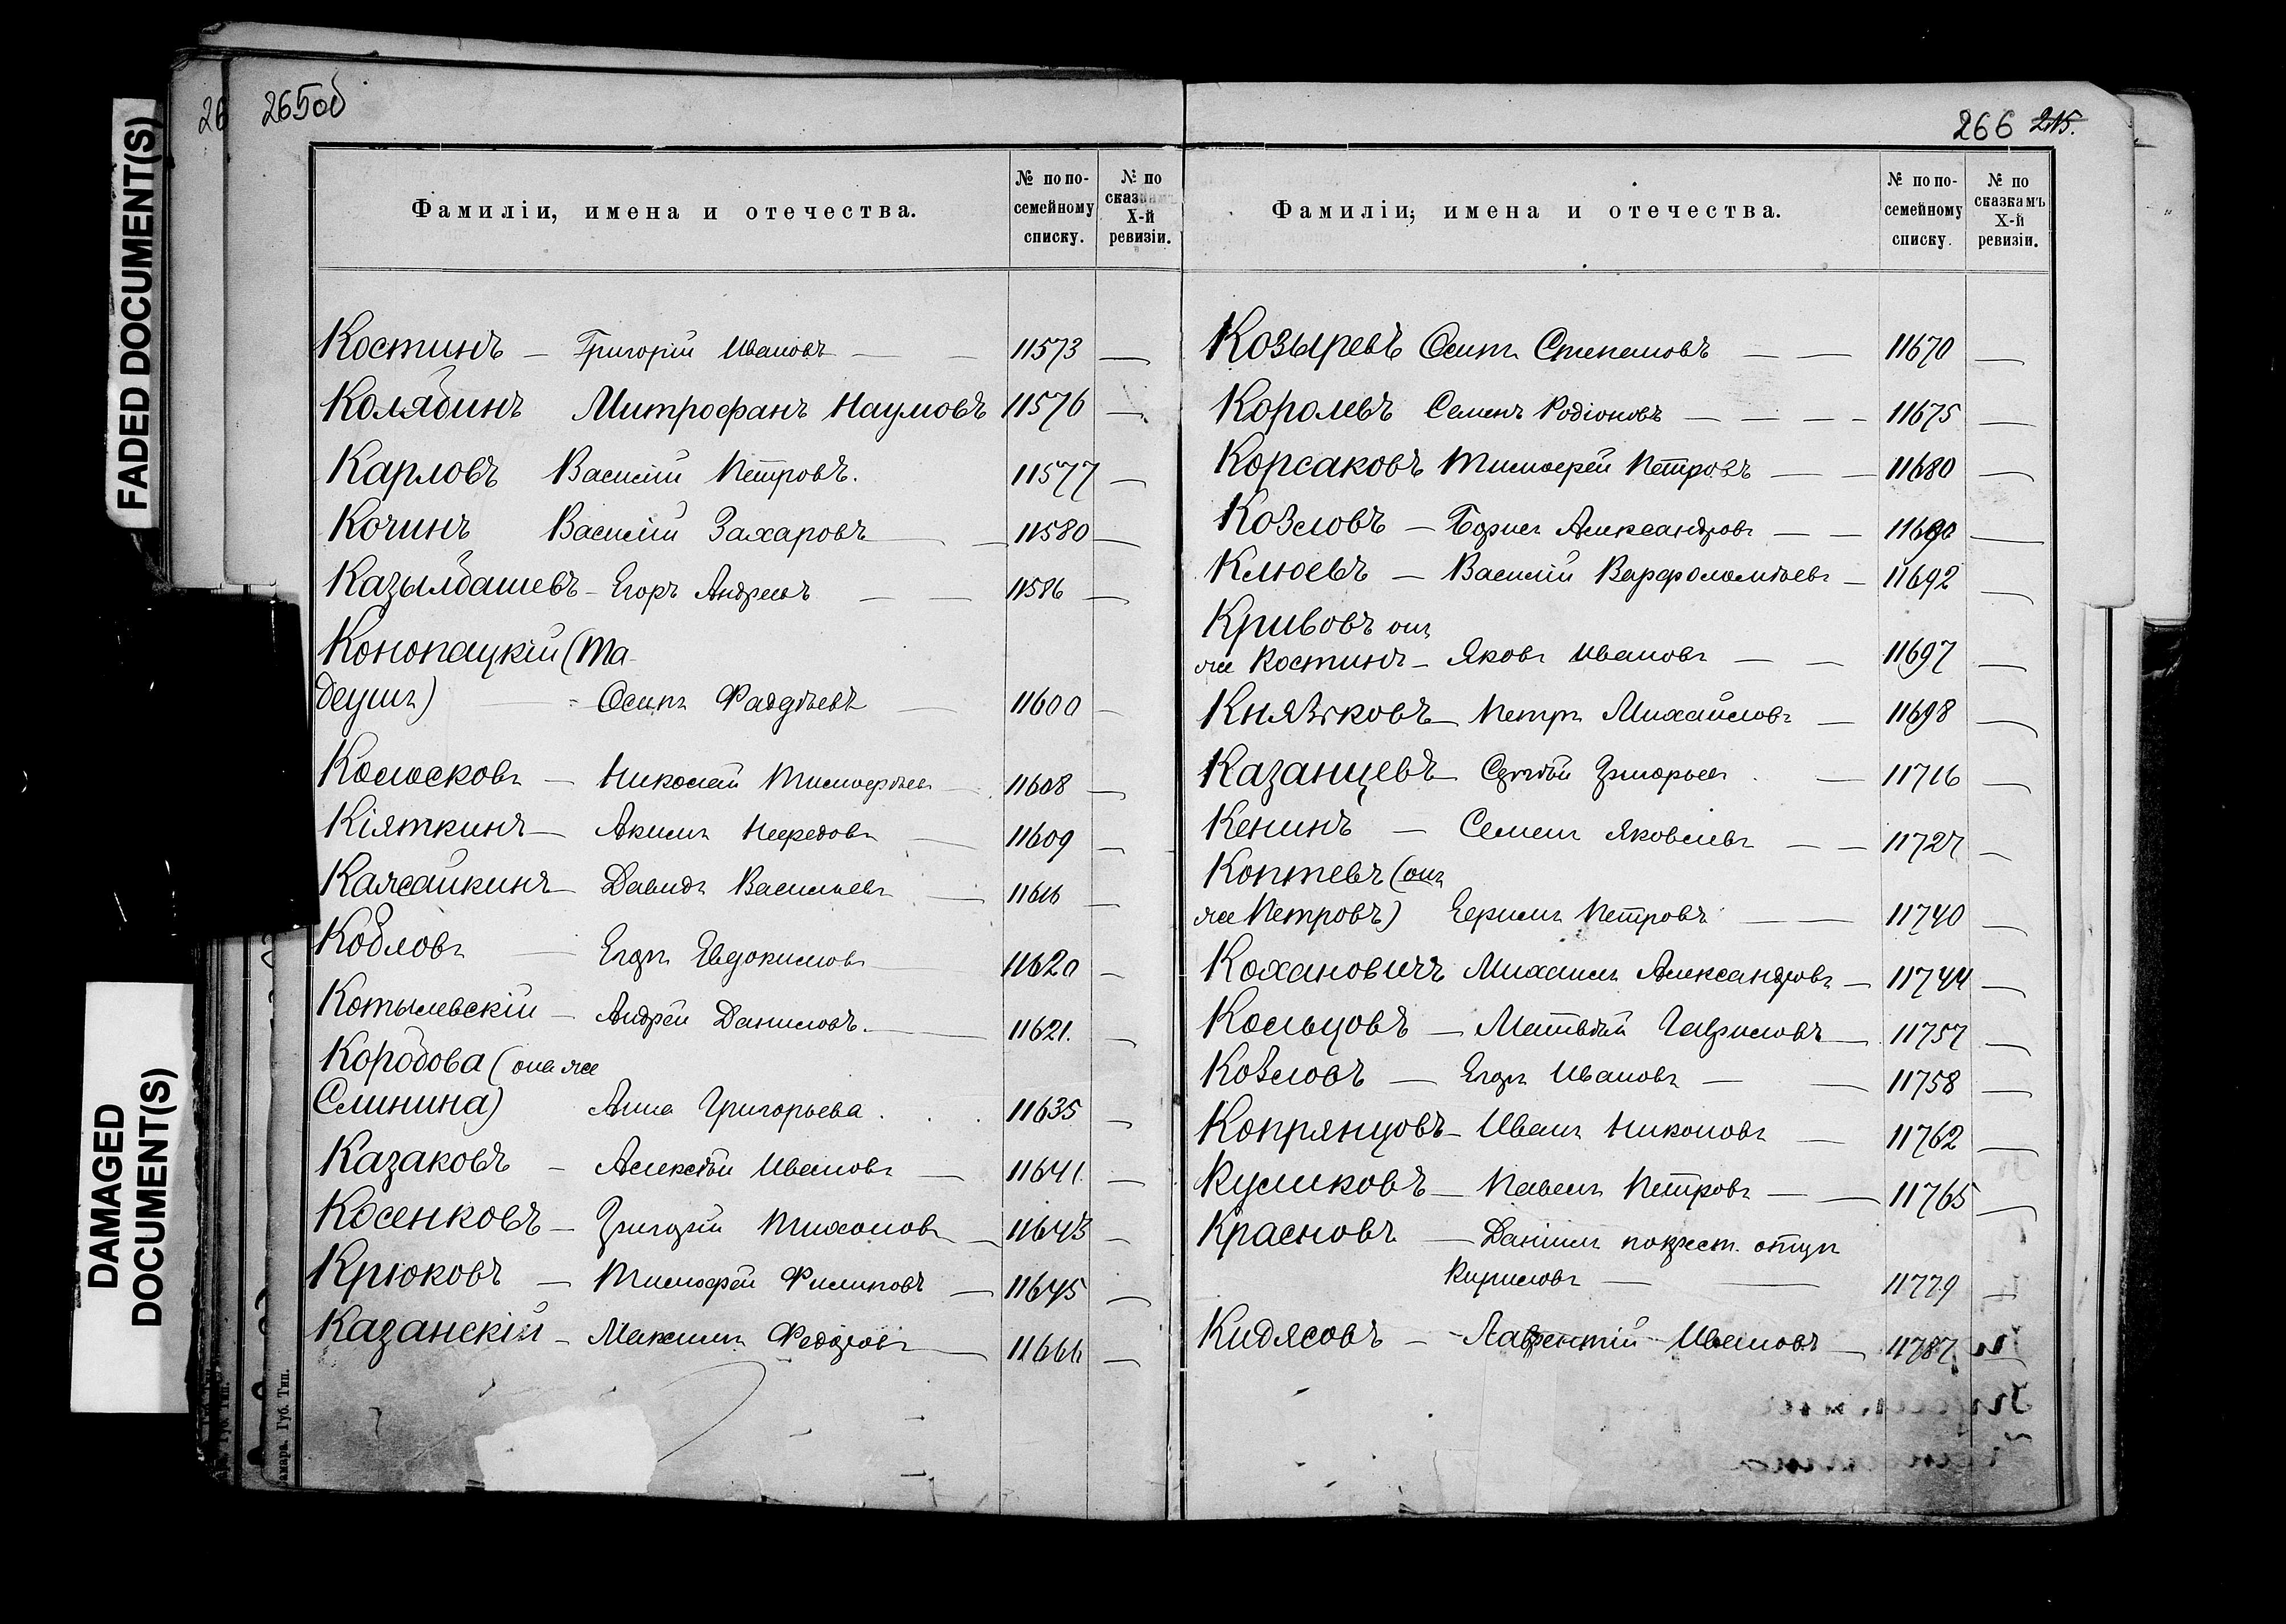 FADED DOCUMENT(S)
DAMAGED
DOCUMENT(S)
26
265об
Фамиліи, имена и отечества.
№ по по-
семейному
списку.
№ по
сказкамъ
X-й
ревизіи.
Костинъ — Григорій Ивановъ — — 11573 —
Колябинъ Митрофанъ Наумовъ 11576 —
Карловъ Василій Петровъ. 11577 —
Кочинъ Василій Захаровъ — — 11580 —
Казылбашевъ — Егоръ Андреевъ — — 11586 —
Конопацкій (Та-
деушъ) — Осипъ Фаддѣевъ — 11600 —
Колосковъ — Николай Тимофѣевъ — 11608 —
Кіяткинъ — Акимъ Нефедовъ — 11609 —
Кажайкинъ — Давидъ Васильевъ — 11616 —
Кобловъ — Егоръ Евдокимовъ — 11620 —
Котылевскій — Андрей Даниловъ. — 11621. —
Коробова (она же
Слинина) Анна Григорьева . . . 11635 —
Казаковъ — Алексѣй Ивановъ — 11641. —
Косенковъ — Григорій Тихоновъ — 11643 —
Крюковъ — Тимофей Филиповъ — 11645 —
Казанскій — Максимъ Федоровъ — 11666 —
амара. Губ. Тип.
266 215.
Фамиліи, имена и отечества.
№ по по-
семейному
списку.
№ по
сказкамъ
X-й
ревизіи.
Козыревъ Осипъ Степановъ — — 11670 —
Королевъ Семенъ Родіоновъ — — — — 11675 —
Корсаковъ Тимофей Петровъ — — 11680 —
Козловъ — Борисъ Александровъ — — 11690 —
Клюевъ — Василій Варфоломѣевъ — 11692 —
Кривовъ онъ
же Костинъ — Яковъ Ивановъ — — 11697 —
Князьковъ — Петръ Михайловъ — 11698 —
Казанцевъ — Сергѣй Григорьевъ . — 11716 —
Кенинъ — Семенъ Яковлевъ — — 11727 —
Коптевъ (онъ
же Петровъ) Ефимъ Петровъ — — 11740 —
Кохановичъ Михаилъ Александровъ — 11744 —
Кольцовъ — Матвѣй Гавриловъ — 11757 —
Козловъ — Егоръ Ивановъ — — 11758 —
Копрянцовъ — Иванъ Никоновъ — 11762 —
Куликовъ — Павелъ Петровъ — — 11765 —
Красновъ — Даніилъ по крест. отцу
Кириловъ — — 11779 —
Кидясовъ — Лаврентій Ивановъ — 11787